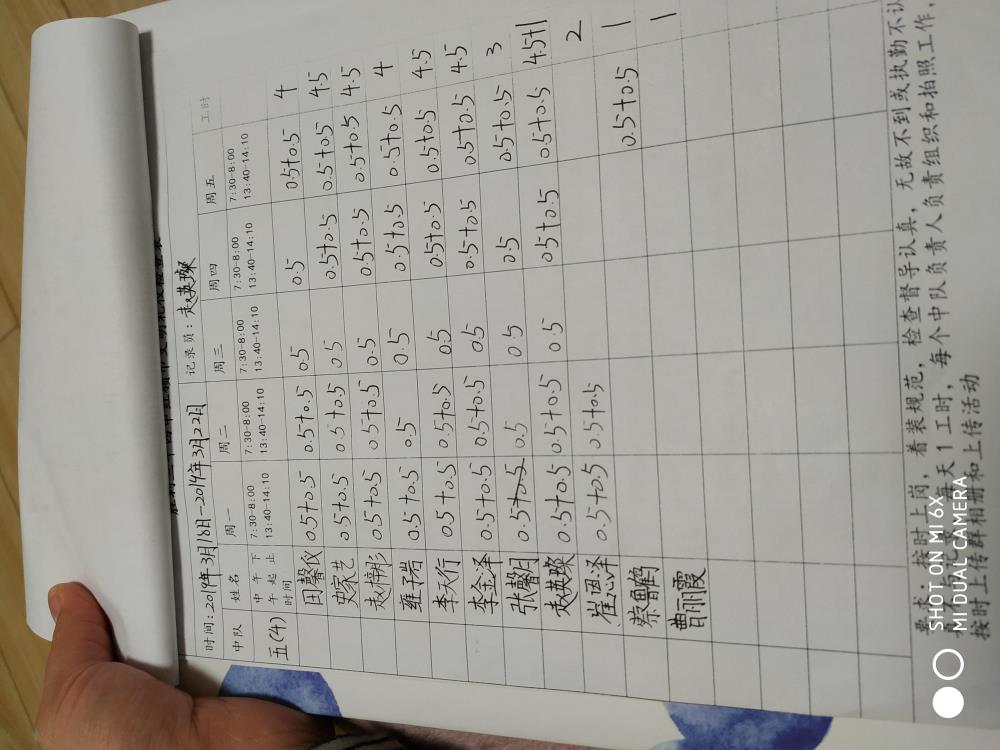 时间:2019年3月18日-2019年3月22日 记录员:赵英璨
中队 姓名 周一 周二 周三 周四 周五 工时
中 午 下 7:30-8:00 7:30-8:00 7:30-8:00 7:30-8:00 7:30-8:00
午 起 止 13:40-14:10 13:40-14:10 13:40-14:10 13:40-14:10 13:40-14:10
时间
五(4) 田馨仪 0.5+0.5 0.5+0.5 0.5 0.5 0.5+0.5 4
史家艺 0.5+0.5 0.5+0.5 0.5 0.5+0.5 0.5+0.5 4.5
赵梓杉 0.5+0.5 0.5+0.5 0.5 0.5+0.5 0.5+0.5 4.5
雍子岩 0.5+0.5 0.5 0.5 0.5+0.5 0.5+0.5 4
李天行 0.5+0.5 0.5+0.5 0.5 0.5+0.5 0.5+0.5 4.5
李金泽 0.5+0.5 0.5+0.5 0.5 0.5+0.5 0.5+0.5 4.5
0.5+0.5 0.5 0.5 0.5 0.5+0.5 3
赵英璨 0.5+0.5 0.5+0.5 0.5 0.5+0.5 0.5+0.5 4.5+1
崔恩泽 0.5+0.5 0.5+0.5 2
0.5+0.5 1
曹丽霞 1
要求:按时上岗,着装规范,检查督导认真,无故不到或执勤不认
每天1工时,每个中队负责人负责组织和拍照工作,
按时上传群相册和上传活动
SHOT ON MI 6X
MI DUAL CAMERA